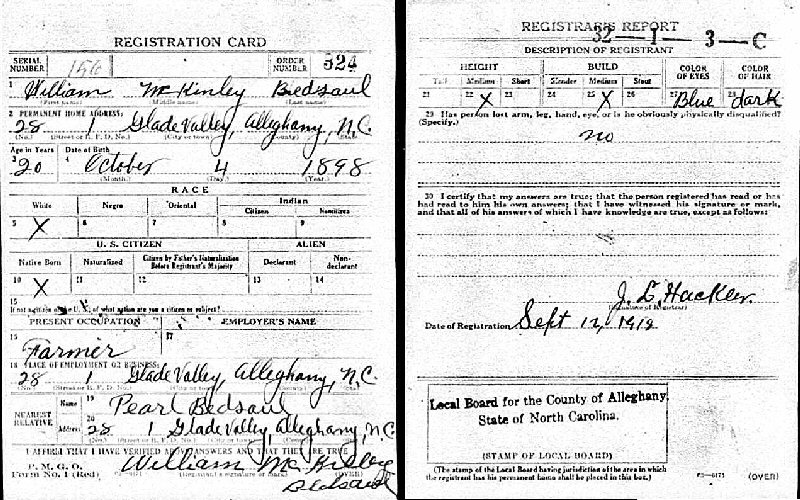 REGISTRATION CARD
SERIAL NUMBER 156 ORDER NUMBER 524
1 William McKinley Bedsaul
(First name) (Middle name) (Last name)
2 PERMANENT HOME ADDRESS:
28 1 Glade Valley, Alleghany, N.C.
(No.) (Street or R. F. D. No.) (City or town) (County) (State)
Age in Years Date of Birth
3 20 4 October 4 1898
(Month.) (Day.) (Year.)
RACE
White Negro Oriental Indian
Citizen Noncitizen
5 X 6 7 8 9
U. S. CITIZEN ALIEN
Native Born Naturalized Citizen by Father's Naturalization Before Registrant's Majority Declarant Non-declarant
10 X 11 12 13 14
15
If not a citizen of the U. S., of what nation are you a citizen or subject?
PRESENT OCCUPATION EMPLOYER'S NAME
16 17
Farmer
18 PLACE OF EMPLOYMENT OR BUSINESS:
28 1 Glade Valley, Alleghany, N.C.
(No.) (Street or R. F. D. No.) (City or town) (County) (State)
NEAREST RELATIVE Name 19 Pearl Bedsaul
Address 20 28 1 Glade Valley, Alleghany, N.C.
(No.) (Street or R. F. D. No.) (City or town) (County) (State)
I AFFIRM THAT I HAVE VERIFIED ABOVE ANSWERS AND THAT THEY ARE TRUE
P. M. G. O.
Form No. 1 (Red) William McKinley Bedsaul
(Registrant's signature or mark) (OVER)
REGISTRAR'S REPORT
32—1—3—C
DESCRIPTION OF REGISTRANT
HEIGHT BUILD COLOR OF EYES COLOR OF HAIR
Tall Medium Short Slender Medium Stout
21 22 X 23 24 25 X 26 27 Blue 28 dark
29 Has person lost arm, leg, hand, eye, or is he obviously physically disqualified?
(Specify.)
no
30 I certify that my answers are true; that the person registered has read or has
had read to him his own answers; that I have witnessed his signature or mark,
and that all of his answers of which I have knowledge are true, except as follows:
J. L. Hackler
(Signature of Registrar)
Date of Registration Sept 12, 1918
Local Board for the County of Alleghany
State of North Carolina.
(STAMP OF LOCAL BOARD)
(The stamp of the Local Board having jurisdiction of the area in which
the registrant has his permanent home shall be placed in this box.)
(OVER)